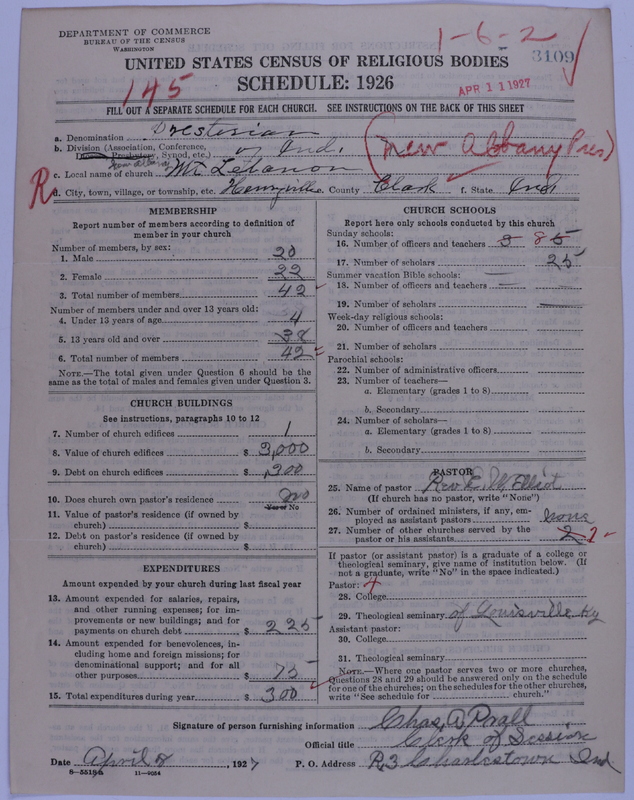 DEPARTMENT OF COMMERCE
BUREAU OF THE CENSUS
WASHINGTON
1-6-2
3109
UNITED STATES CENSUS OF RELIGIOUS BODIES
SCHEDULE: 1926
145
APR 11 1927
FILL OUT A SEPARATE SCHEDULE FOR EACH CHURCH. SEE INSTRUCTIONS ON THE BACK OF THIS SHEET
a. Denomination
b. Division (Association, Conference, Diocese, Presbytery, Synod, etc.) of Ind.
(New Albany Pres)
New Albany
R
c. Local name of church Mt. Lebanon
d. City, town, village, or township, etc. Henryville e. County Clark f. State Ind.
MEMBERSHIP
Report number of members according to definition of member in your church
Number of members, by sex:
1. Male 20
2. Female 22
3. Total number of members 42
Number of members under and over 13 years old:
4. Under 13 years of age 4
5. 13 years old and over 38
6. Total number of members 42
NOTE.—The total given under Question 6 should be the same as the total of males and females given under Question 3.
CHURCH BUILDINGS
See instructions, paragraphs 10 to 12
7. Number of church edifices 1
8. Value of church edifices $ 3,000
9. Debt on church edifices $ 300
10. Does church own pastor's residence No
Yes or No
11. Value of pastor's residence (if owned by church) $
12. Debt on pastor's residence (if owned by church) $
EXPENDITURES
Amount expended by your church during last fiscal year
13. Amount expended for salaries, repairs, and other running expenses; for improvements or new buildings; and for payments on church debt $ 225
14. Amount expended for benevolences, including home and foreign missions; for denominational support; and for all other purposes $ 75
15. Total expenditures during year $ 300
CHURCH SCHOOLS
Report here only schools conducted by this church
Sunday schools:
16. Number of officers and teachers 3 8 5
17. Number of scholars 25
Summer vacation Bible schools:
18. Number of officers and teachers
19. Number of scholars
Week-day religious schools:
20. Number of officers and teachers
21. Number of scholars
Parochial schools:
22. Number of administrative officers
23. Number of teachers—
a. Elementary (grades 1 to 8)
b. Secondary
24. Number of scholars—
a. Elementary (grades 1 to 8)
b. Secondary
PASTOR
25. Name of pastor Rev. E. M. Elliot
(If church has no pastor, write "None")
26. Number of ordained ministers, if any, employed as assistant pastors none
27. Number of other churches served by the pastor or his assistants 2 1
If pastor (or assistant pastor) is a graduate of a college or theological seminary, give name of institution below. (If not a graduate, write "No" in the space indicated.)
Pastor:
28. College
29. Theological seminary of Louisville Ky
Assistant pastor:
30. College
31. Theological seminary
NOTE.—Where one pastor serves two or more churches, Questions 28 and 29 should be answered only on the schedule for one of the churches; on the schedules for the other churches, write "See schedule for church."
Signature of person furnishing information Chas. A. Prall
Official title Clerk of Session
Date April 8, 1927 P. O. Address R. 3 Charlestown Ind.
8—5518a 11—9054